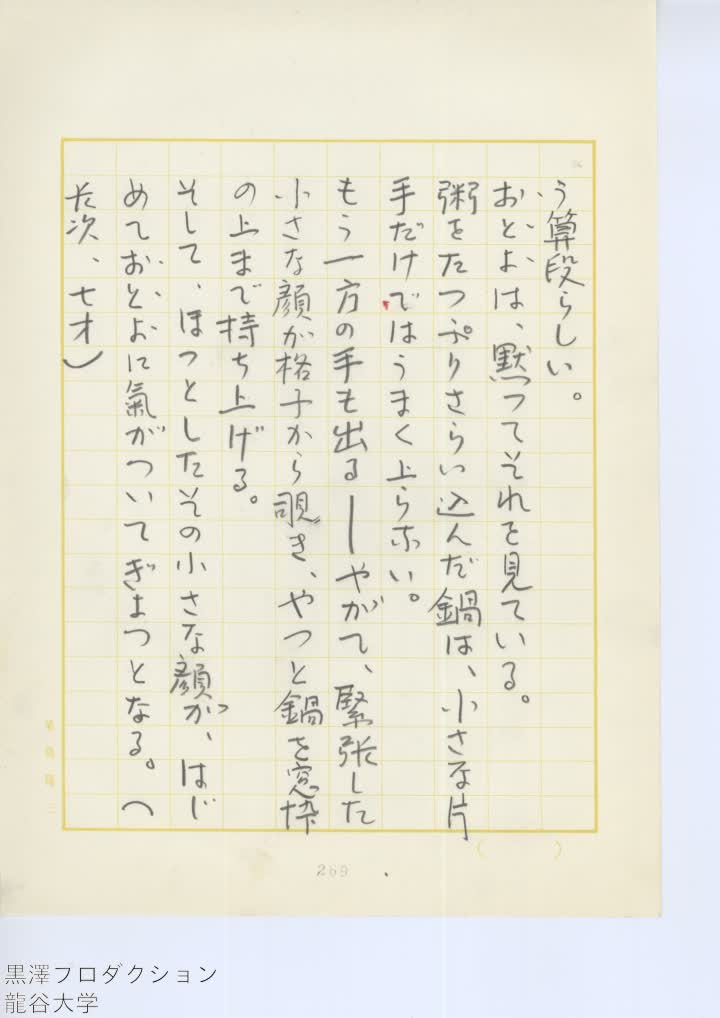 う算段らしい。
おとよは、黙つてそれを見ている。
粥をたつぷりさらい込んだ鍋は、小さな片
手だけではうまく上らない。
もう一方の手も出る―やがて、緊張した
小さな顔が格子から覗き、やつと鍋を窓枠
の上まで持ち上げる。
そして、ほつとしたその小さな顔が、はじ
めておとよに氣がついてぎよつとなる。（
長次、七才）
269
黒澤プロダクション
龍谷大学